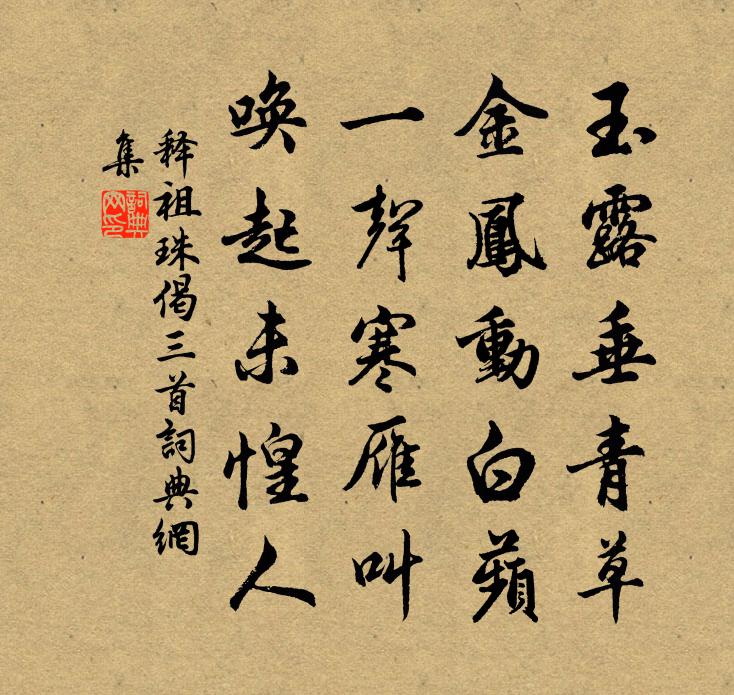 玉露垂青草
金鳳動白蘋
一聲寒雁叫
喚起未惶人
釋祖珠偈三首詞典網
集
詞典
网印